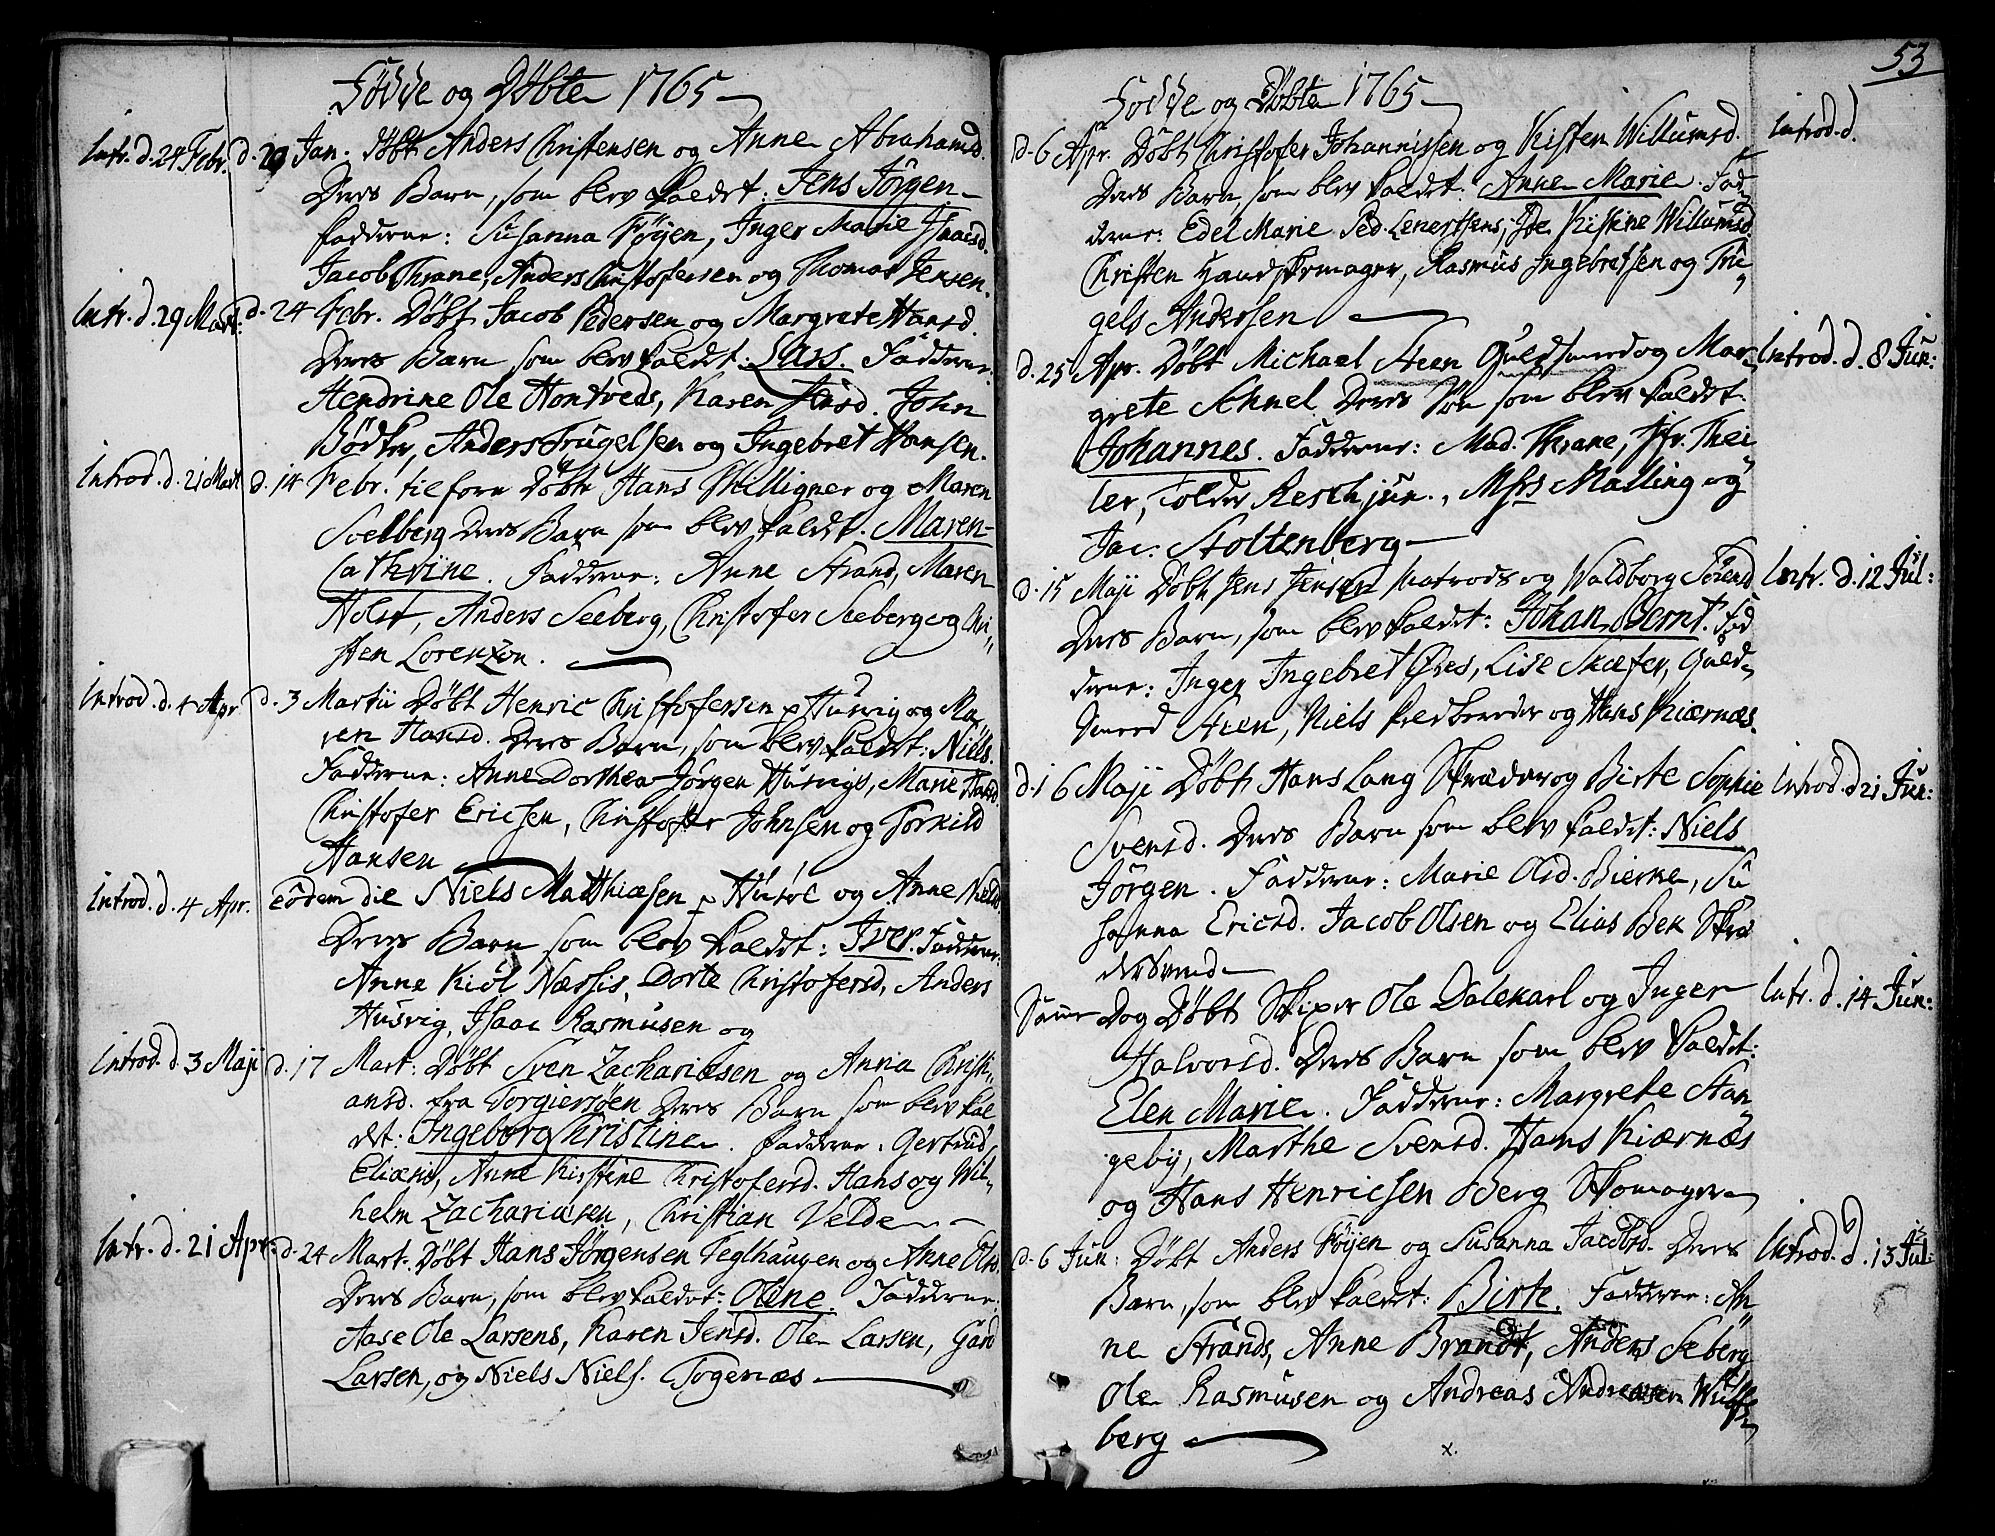 Födde og Döbte 1765
Intr. d. 24 Febr. d. 29 Jan. Döbt Anders Christensen og Anne Abrahamsd.
Deres Barn, som blev kaldet: Jens Jörgen
Fadderne: Susanna Föyen, Inger Marie Isaacsd.
Jacob Thrane, Anders Christofersen og Thomas Jensen.
Intr. d. 29 Mart: d. 24 Febr. Döbt Jacob Pedersen og Margrete Hansd.
Deres Barn som blev kaldet: Lars. Fadderne:
Hendrine Ole Hontveds, Karen John
Bödker, Anders Trugelsen og Ingebret Hansen.
Introd. d. 21 Mart d. 14 Febr. tilforn Döbt Hans Skilligner og Maren
Seeberg Deres Barn som blev kaldet. Maren
Cathrine. Fadderne: Anne Strand, Maren
Holst, Anders Seeberg, Christofer Seeberg og Chri-
sten Lorenzon.
Introd. d. 4 Apr. d. 3 Martii Döbt Henric Christofersen p Husvig og Ma-
ren Hansd. Deres Barn, som blev kaldet: Niels.
Fadderne: Anne Dorthea Jörgen Husvigs, Marie Hansd
Christofer Ericsen, Christoffer Johnsen og Torkild
Hansen
Introd. d. 4 Apr. eodem die Niels Matthiæsen p Husöe og Anne Nielsd.
Deres Barn som blev kaldet: Iver. Fadderne:
Anne Kiöl Næssis, Dorte Christofersd, Anders
Husvig, Isaac Rasmusen og
Introd. d. 3 Maji d. 17 Mart: Döbt Sven Zachariæsen og Anna Christi-
ansd. fra Torgiersöen Deres Barn som blev kal
det: Ingeborg Christine. Fadderne: Gertrud
Eliæsd, Anne Kirstine Christofersd. Hans og Wil-
helm Zachariæsen, Christian Velde
Intr. d. 21 Apr: d. 24 Mart. Döbt Hans Jörgensen Teglhaugen og Anne Olsd.
Deres Barn, som blev kaldet: Oline. Fadderne:
Aase Ole Larsens, Karen Jensd. Ole Larsen, Gard
Larsen, og Niels Niels. Togenæs
53
Födde og Döbte 1765
d. 6 Apr. Döbt Christofer Johannissen og Kisten Willumsd. Introd. d.
Deres Barn, som blev kaldet. Anne Marie. Fad-
derne: Edel Marie Ped. Lenertsens, Kistine Willumsd.
Christen Handskemager, Rasmus Ingebretsen og Tru-
gels Anderssen
d. 25 Apr. Döbt Michael Steen Guldsmed og Mar- Introd. d. 8 Jun:
grete Schnel. Deres Sön som blev kaldet.
Johannes. Fadderne: Mad. Thrane, Jfr. Thei
ler, Tolder Resch jun., Msr Malling og
Jac: Stoltenberg
d. 15 Maji Döbt Jens Jensen Matrods og Waldborg Sörensd Intr. d. 12 Jul:
Deres Barn, som blev kaldet: Johan Bernt. Fad
derne: Inger Ingebret Öres, Lise Skæfer, Guld-
smed Steen, Niels og Hans Kiærnæs.
d. 16 Maji Döbt Hans Lang Skræder og Birte Sophie Introd. d 21 Jun:
Svensd. Deres Barn som blev kaldet: Niels
Jörgen. Fadderne: Marie Olsd. Bierke, Su
sanna Ericsd. Jacob Olsen og Elias Bek Skræ
dersvend
Samme Dag Döbt Skiper Ole Dalekarl og Inger Intr. d. 14 Jun:
Halvorsd. Deres Barn som blev kaldet:
Elen Marie. Fadderne: Margrete Stan-
geby, Marthe Svensd. Hans Kiærnæs
og Hans Henricsen Berg Skomager
d. 6 Jun: Döbt Anders Föyen og Susanna Jacobsd. Deres Introd. d. 13 Jul:
Barn, som blev kaldet: Birte. Fadderne: An-
ne Strands, Anne Brandt, Anders Seberg
Ole Rasmusen og Andreas Andreasen Wulfs-
berg
x.